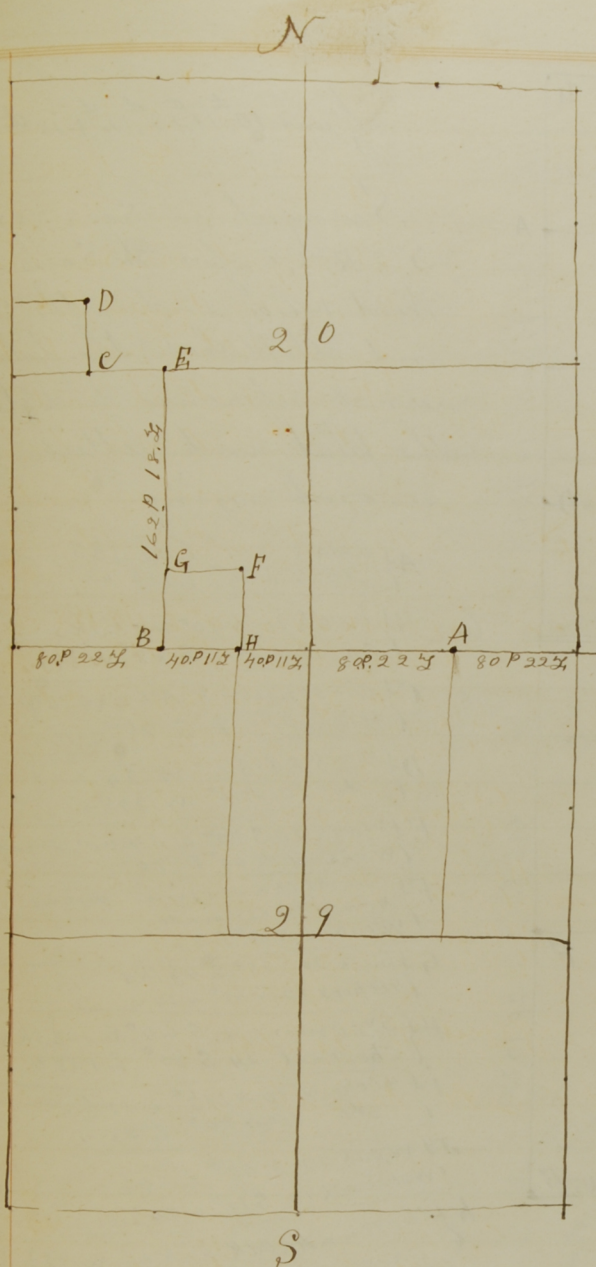 N
D
2 0
C E
162 P 18 L
G F
B H A
80 P 22 L 40 P 11 L 40 P 11 L 80 P. 22 L 80 P 22 L
2 9
S